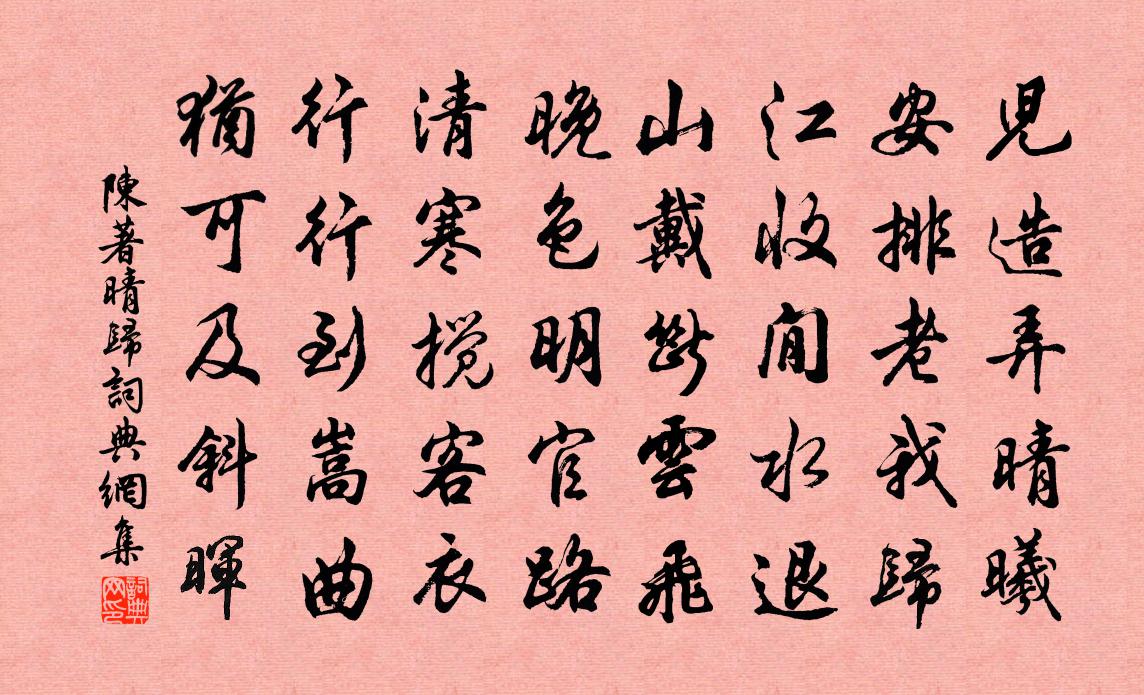 児造弄晴曦
安排老我歸
江收閒水退
山戴斷雲飛
晚色明官路
清寒攪客衣
行行到嵩曲
猶可及斜暉
陳著晴歸詞典網集
詞典网印